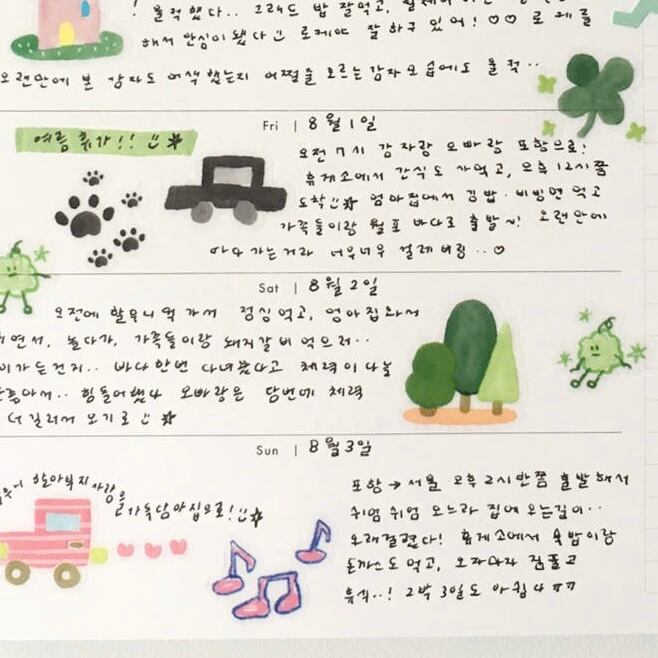 ! 울컥했다.. 그래도 밥 잘먹고,
해서 안심이 됐다 로케야 잘 하구 있어! ♡♡ 로케를
오랜만에 본 감자도 어색했는지 어쩔줄 모르는 감자 모습에도 울컥..
Fri | 8월 1일
여름 휴가!!
오전 7시 감자랑 오빠랑 포항으로!
휴게소에서 간식도 사먹고, 오후 12시쯤
도착 엄마집에서 김밥·비빔면 먹고
가족들이랑 월포 바다로 출발~! 오랜만에
바다 가는거라 너무너무 설레버림..♡
Sat | 8월 2일
오전에 할무니댁 가서 점심먹고, 엄마집와서
쉬면서, 놀다가, 가족들이랑 돼지갈비 먹으러..
가든건지.. 바다 한번 다녀왔다고 체력이 나눌
안좋아서.. 힘들어했다 오빠랑은 담번에 체력
더 길러서 오기로
Sun | 8월 3일
할아부지 사랑을
가득담아 집으로!
포항 → 서울 오후 2시반쯤 출발해서
쉬엄쉬엄 오느라 집에 오는길이..
오래걸렸다! 휴게소에서 육밥이랑
돈까스도 먹고, 오자마자 짐풀고
휴식..! 2박 3일도 아쉽다 ㅠㅠ